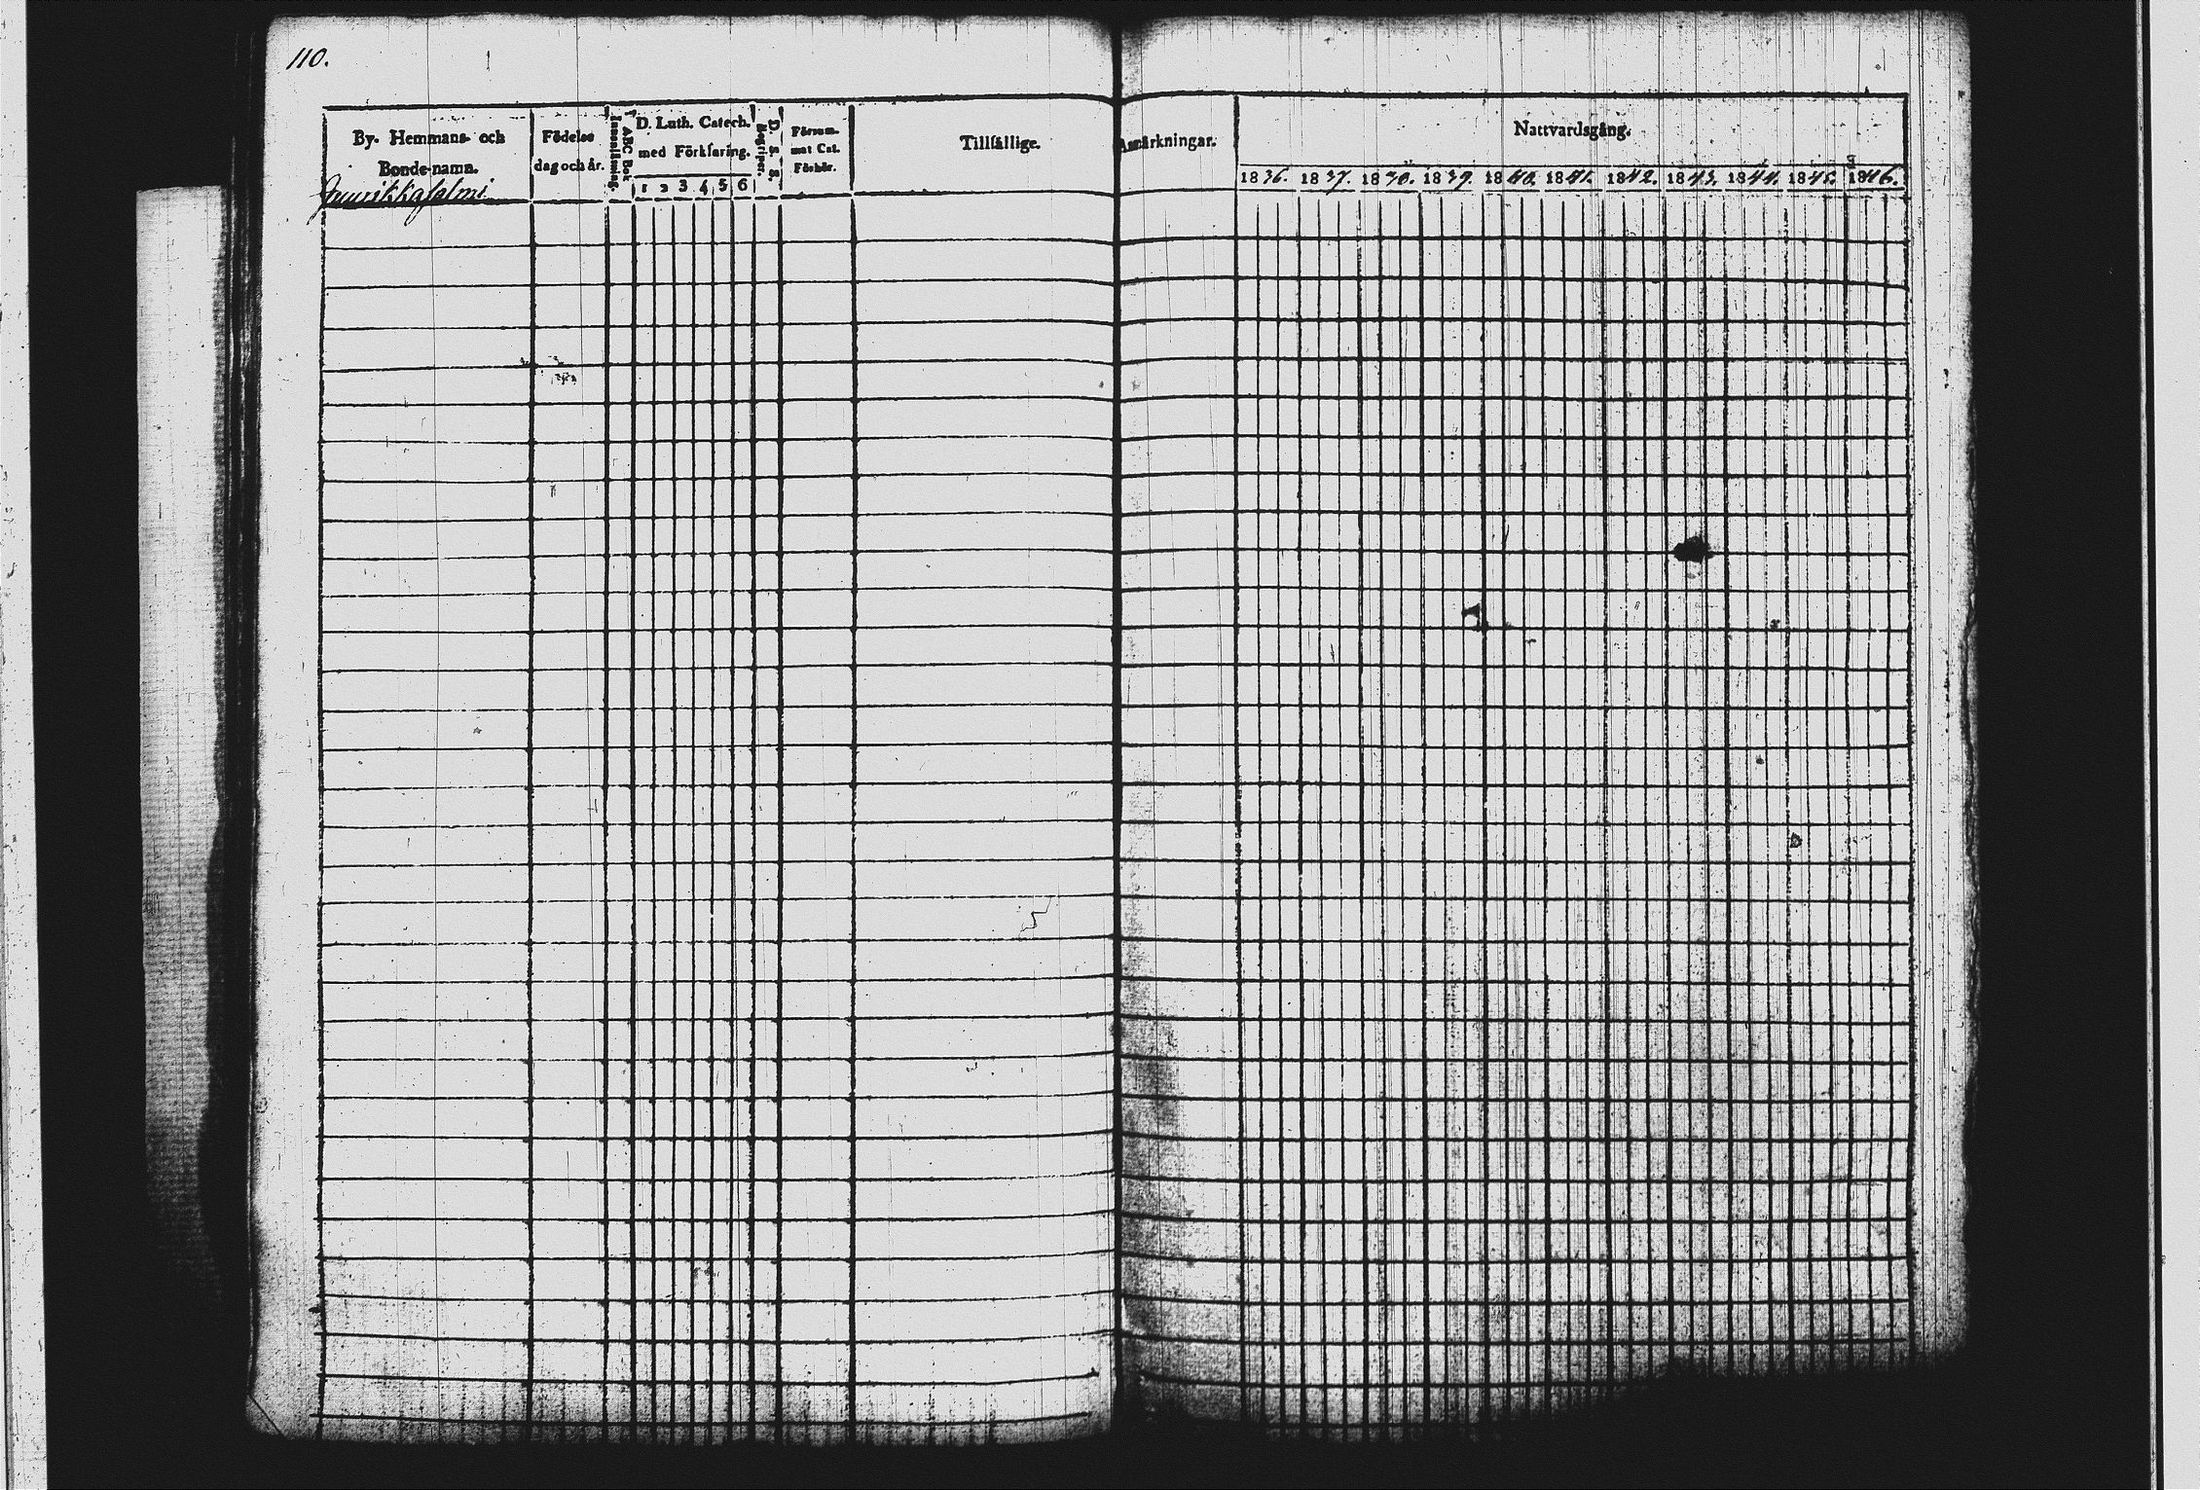 110.
By. Hemmans- och
Bonde-namn.
Födelse
dag och år.
Innanläsning.
ABC Bok
D. Luth. Catech.
med Förklaring.
1 2 3 4 5 6
Begriper.
D. S. S.
Försum-
mat Cat.
Förhör.
Tillfällige
Anmärkningar.
Nattvardsgång.
1836. 1837. 1838. 1839. 1840. 1841. 1842. 1843. 1844. 1845. 1846.